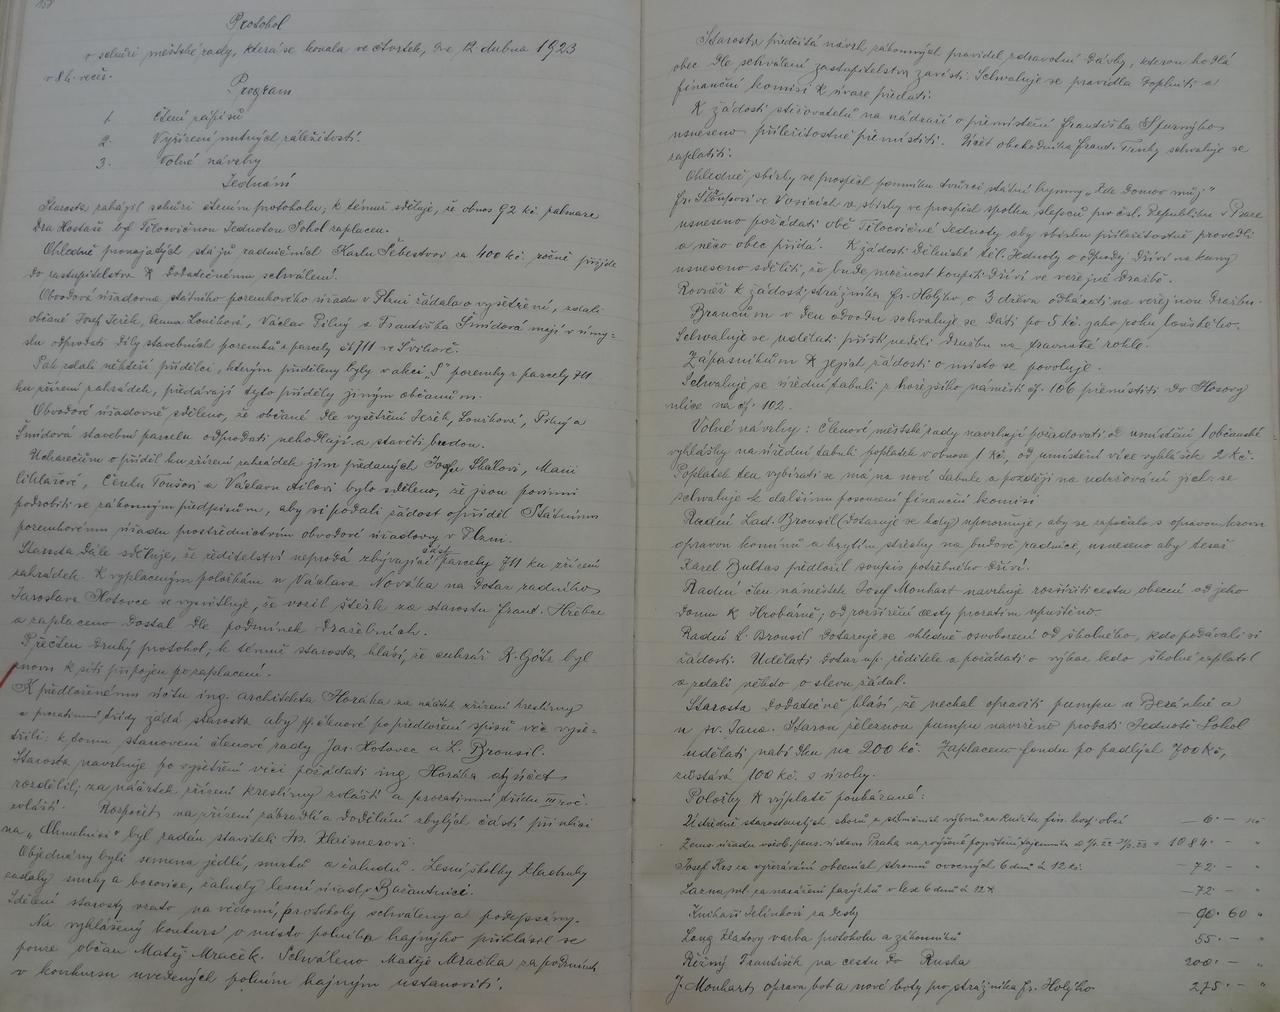 Protokol
o schůzi městské rady, která se konala ve čtvrtek, dne 12 dubna 1923
v 8 h. večer.
Program
1. Čtení zápisů
2. Vyřízení nutných záležitostí.
3. Volné návrhy
Jednání
Starosta zahájil schůzi čtením protokolu; k témuž sděluje, že obnos 92 kč palmare
Dra Hostaše byl Tělocvičnou Jednotou Sokol zaplacen.
Ohledně pronajatých stájů radničních Karlu Šebestovi za 400 kč ročně přijde
do zastupitelstva k dodatečnému schválení.
Obvodová úřadovna státního pozemkového úřadu v Plzni žádala o vyšetření, zdali
občané Josef Ježek, Anna Loníková, Václav Pilný a Františka Šmídová mají v úmy-
slu odprodati díly stavebních pozemků z parcely čk 711 ve Švihově.
Pak zdali někteří přídělci, kterým přiděleny byly v akci „S" pozemky z parcely 711
ku zřízení zahrádek, předávají tyto příděly jiným občanům.
Obvodové úřadovně sděleno, že občané dle vyšetření Ježek, Loníková, Pilný a
Šmídová stavební parcelu odprodati nehodlají a stavěti budou.
Uchazečům o příděl ku zřízení zahrádek jim předaných Josefu Skalovi, Marii
Cihlářové, Čeňku Toušovi a Václavu Ailovi bylo sděleno, že jsou povinni
podrobiti se zákonným předpisům, aby si podali žádost o příděl Státnímu
pozemkovému úřadu prostřednictvím obvodové úřadovny v Plzni.
Starosta dále sděluje, že ředitelství neprodá zbývající část parcely 711 ku zřízení
zahrádek. K vyplaceným položkám u Václava Nováka na dotaz radního
Jaroslava Hotovce se vysvětluje, že vozil štěrk za starostu Frant. Hrčka
a zaplaceno dostal dle podmínek dražebních.
Přečten druhý protokol, k témuž starosta hlásí, že cukrář R. Götz byl
znovu k síti připojen po zaplacení.
K předloženému účtu ing. architekta Horáka za náčrtek zřízení kreslírny
a prozatimní třídy žádá starosta aby členové po předložení spisů věc vyše-
třili; k tomu stanoveni členové rady Jar. Hotovec a L. Brousil.
Starosta navrhuje po vyšetření věci požádati ing Horáka aby účet
rozdělil; za náčrtek zřízení kreslírny zvlášť a prozatimní třídu III roč.
zvlášť. Rozpočet na zřízení zábradlí a dodělání zbylých částí při ulici
na „Chmelnici" byl zadán staviteli Fr. Kleisnerovi.
Objednány byli semena jedlí, smrků a žaludů. Lesní školky Kladruby
zaslaly smrky a borovice, žaludy lesní úřad v Bažantnici.
Sdělení starosty vzato na vědomí, protokoly schváleny a podepsány.
Na vyhlášený konkurs o místo polního hajného přihlásil se
pouze občan Matěj Mraček. Schváleno Matěje Mračka za podmínek
v konkursu uvedených polním hajným ustanoviti.
Starosta předčítá návrh zákonných pravidel zdravotní dávky, kterou hodlá
obec dle schválení zastupitelstva zavésti. Schvaluje se pravidla doplniti a
finanční komisi k úvaze předati.
K žádosti stěžovatelů na nádraží o přemístění Františka Spurného
usneseno příležitostně přemístiti. Účet obchodníka Frant. Trnky schvaluje se
zaplatiti.
Ohledně sbírky ve prospěch pomníku tvůrci státní hymny „Kde Domov můj"
Fr. Škroupovi ve Vosicích a sbírky ve prospěch spolku slepců pro čsl. Republiku v Praze
usneseno požádati obě Tělocvičné Jednoty aby sbírku příležitostně provedli
a něco obec přidá. K žádosti Dělnické těl. Jednoty o odprodej dříví na kůny
usneseno sděliti, že bude možnost koupiti dříví ve veřejné dražbě.
Rovněž k žádosti strážníka Fr. Holýho, o 3 dřeva odkázati na veřejnou dražbu.
Brancům v den odvodu schvaluje se dáti po 5 kč. jako roku loňského.
Schvaluje se udělati příští neděli dražbu na travnaté rohle.
Zápasníkům k jejich žádosti o místo se povoluje.
Schvaluje se úřední tabuli z hořejšího náměstí čp. 106 přemístiti do Husovy
ulice na čp. 102.
Volné návrhy: Členové městské rady navrhují požadovati od umístění 1 občanské
vyhlášky na úřední tabuli poplatek v obnose 1 Kč, od umístění více vyhlášek 2 kč.
Poplatek ten vybírati se má na nové tabule a později na udržování jich; se
schvaluje k dalšímu posouzení finanční komisi
Radní Lad. Brousil (dotazuje se kdy) upozorňuje, aby se započalo s opravou krovu
opravou komínů a krytím střechy na budově radnice, usneseno aby tesař
Karel Bultas předložil soupis potřebného dříví.
Radní člen náměstek Josef Monhart navrhuje rozšířiti cestu obecní od jeho
domu k Hrobárně; od rozšíření cesty prozatím upuštěno.
Radní L. Brousil dotazuje se ohledně osvobození od školného, kdo podávali si
žádosti. Udělati dotaz u p. ředitele a požádati o výkaz kdo školné zaplatil
a zdali někdo o slevu žádal.
Starosta dodatečně hlásí, že nechal opraviti pumpu u Bezánků a
u sv. Jana. Starou železnou pumpu navrženo prodati Jednotě Sokol
udělati nabídku na 200 kč. Zaplaceno fondu po 700 Kč,
zůstává 100 kč. s úroky.
Položky k výplatě poukázané:
Ústředně starostenských sborů a silničních výborů za knihu fin. hosp. obcí — 6 · —
Zems. úřadu všeob. pens. ústavu Praha na zvýšené pojištění tajemníka 1084 · — "
Josef Krs za vyřezávání obecních stromů ovocných 6 dnů à 12 kč. — 72 · — "
Lazna, ml. za nasázení v lese 6 dnů à 12 K — 72 · — "
Knihaři Jelínkovi za desky — 90 · 60 "
Lang Klatovy vazba protokolu a zákonníků 55 · — "
Říčný František na cestu do Ruska 200 · — "
J. Monhart oprava bot a nové boty pro strážníka Fr. Holýho 275 · — "